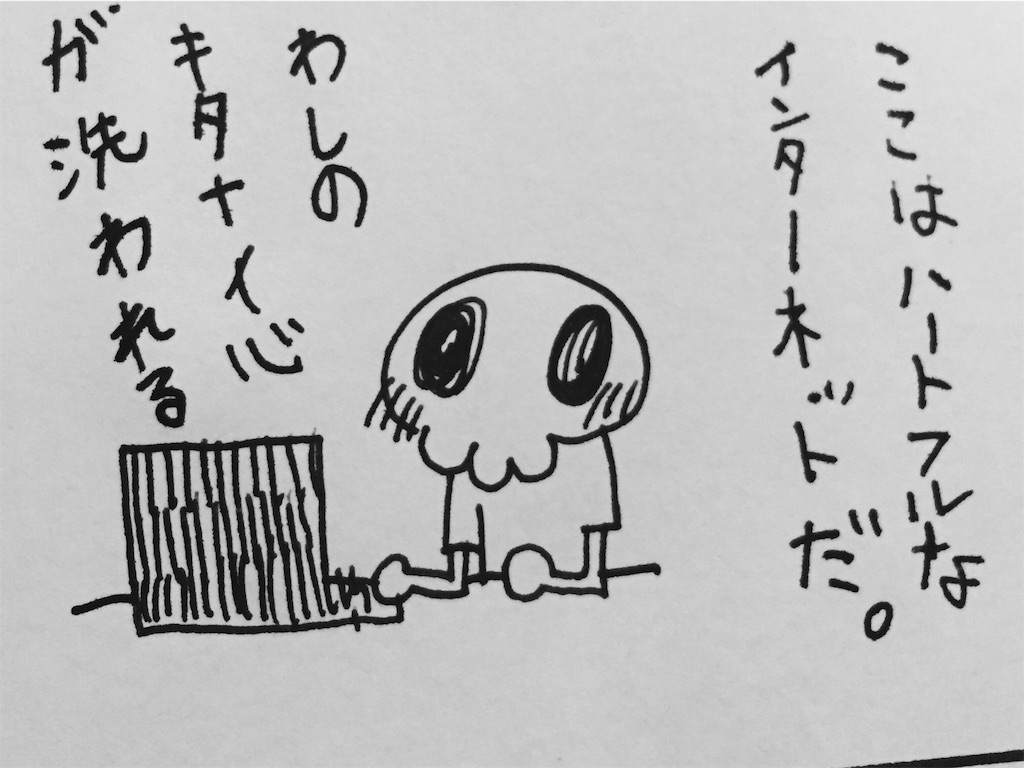 ここはハートフルな
インターネットだ。
わしの
キタナイ心
が洗われる